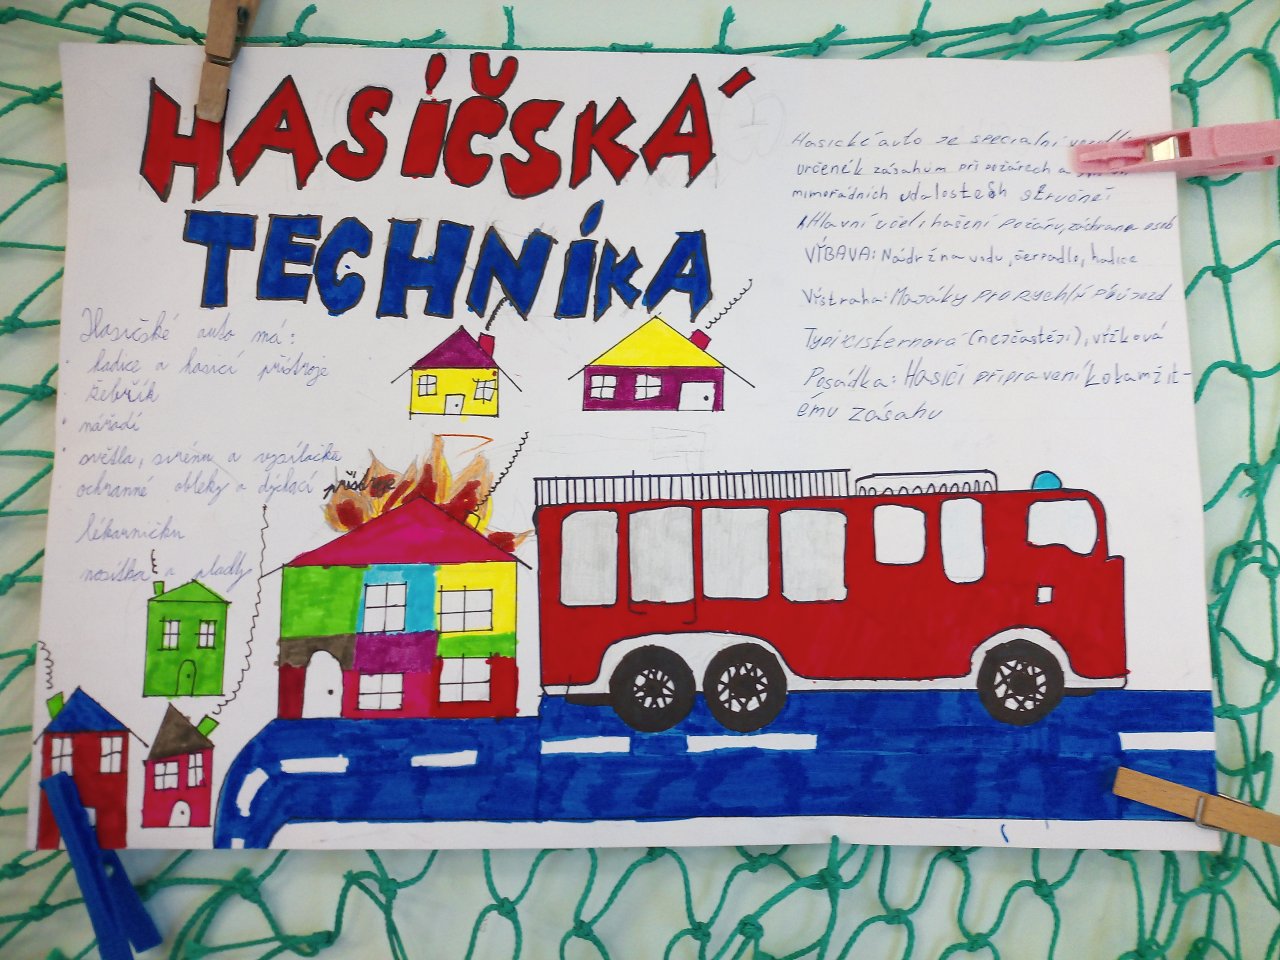 HASÍČSKÁ
TECHNÍKA
Hasičské auto má:
hadice a hasicí přístroje
žebřík
nářadí
světla, siréna a vysílačka
ochranné obleky a dýchací přístroje
lékarničku
nosítka a pladly
Hasické auto je specialní
určeník zásahům při požárech a
mimořádních udalostesh stručnei
Hlavní účel: hašení požáru, záchrana osob
VÍBAVA: Nádrž na vodu, čerpadlo, hadice
Vístraha: Majáky pro rychlí příjezd
Typi: cisternora (nejčastěji), vížková
Posádka: Hasiči připravení k okamžit-
ému zásahu